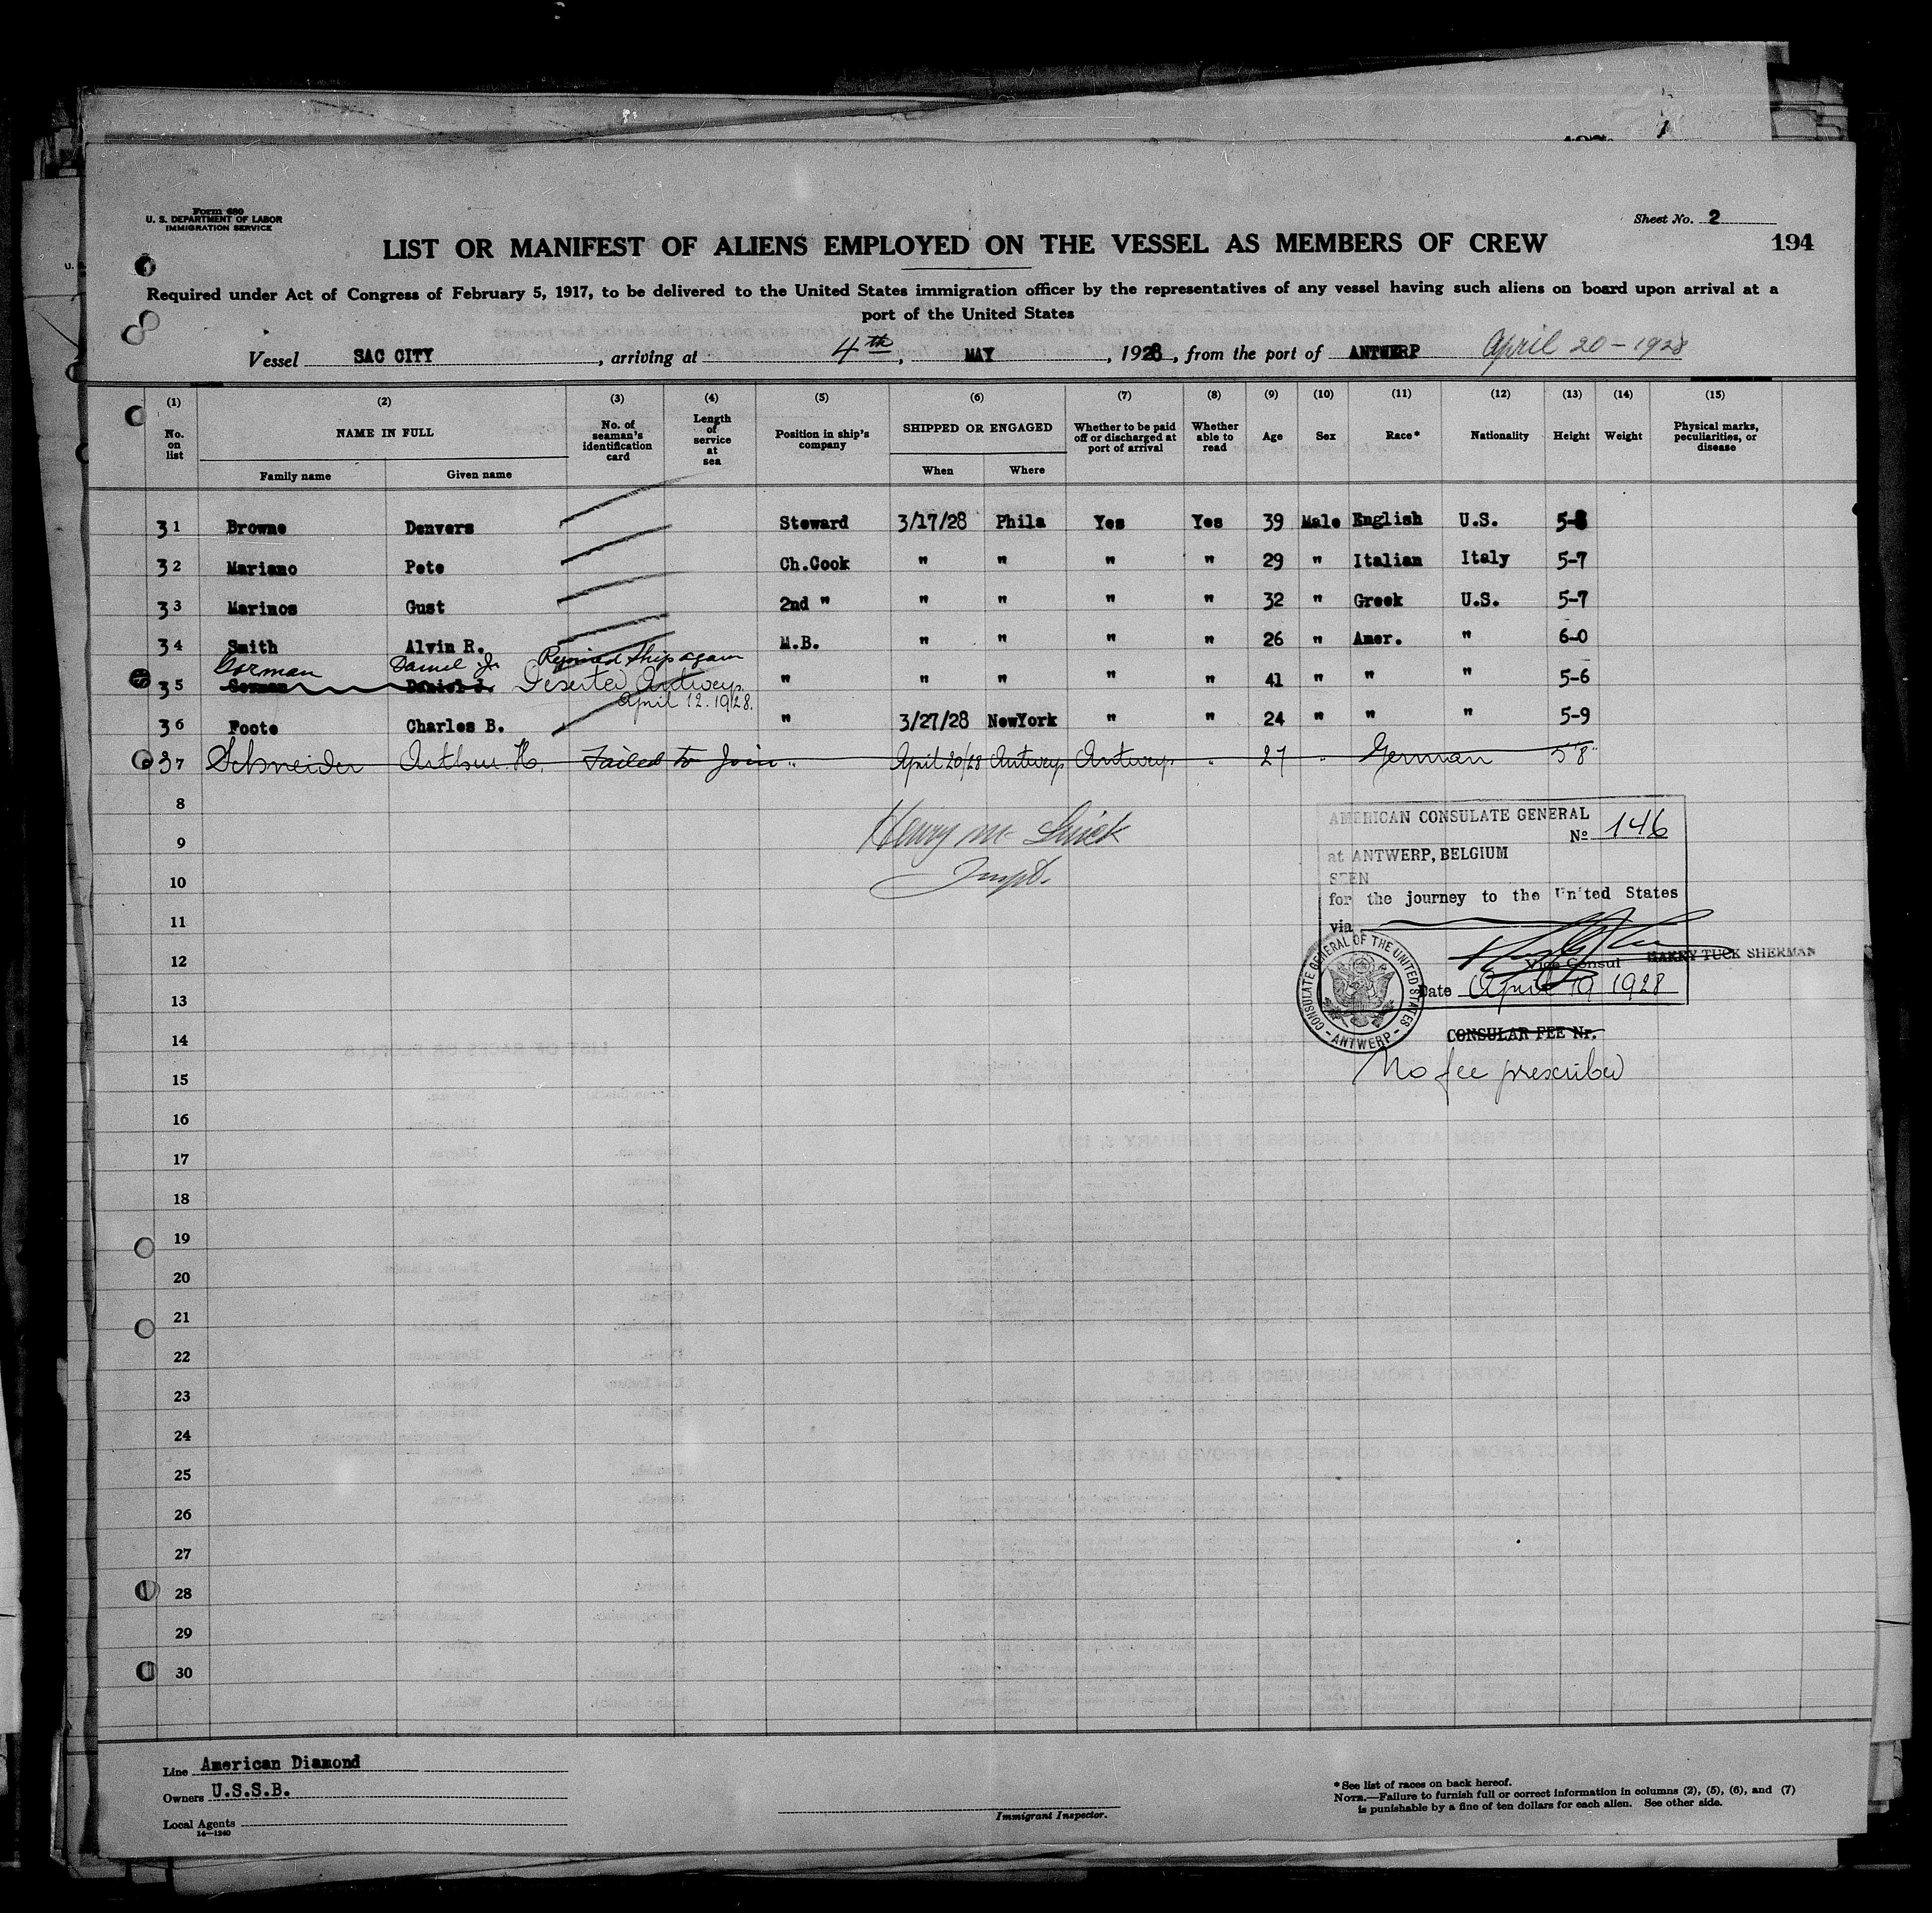 Form 680
U. S. DEPARTMENT OF LABOR
IMMIGRATION SERVICE
Sheet No. 2
LIST OR MANIFEST OF ALIENS EMPLOYED ON THE VESSEL AS MEMBERS OF CREW
194
Required under Act of Congress of February 5, 1917, to be delivered to the United States immigration officer by the representatives of any vessel having such aliens on board upon arrival at a
port of the United States
Vessel SAC CITY, arriving at 4th, MAY, 1928, from the port of ANTWERP April 20-1928
(1) (2) (3) (4) (5) (6) (7) (8) (9) (10) (11) (12) (13) (14) (15)
No. on list NAME IN FULL Family name Given name No. of seaman's identification card Length of service at sea Position in ship's company SHIPPED OR ENGAGED When Where Whether to be paid off or discharged at port of arrival Whether able to read Age Sex Race* Nationality Height Weight Physical marks, peculiarities, or disease
31 Browne Denvers Steward 3/17/28 Phila Yes Yes 39 Male English U.S. 5-8
32 Mariano Pete Ch.Cook " " " " 29 " Italian Italy 5-7
33 Marinos Gust 2nd " " " " " 32 " Greek U.S. 5-7
34 Smith Alvin R. M.B. " " " " 26 " Amer. " 6-0
Gorman Daniel J. Rejoined Ship again
35 Gorman Daniel J. Deserted Antwerp " " " " " 41 " " " 5-6
April 12. 1928.
36 Foote Charles B. " 3/27/28 NewYork " " 24 " " " 5-9
37 Schneider Arthur H. Failed to Join " April 20/28 Antwerp Antwerp " 27 " German 5'8"
8
9
10
11
12
13
14
15
16
17
18
19
20
21
22
23
24
25
26
27
28
29
30
Henry Mc
Inspt.
AMERICAN CONSULATE GENERAL
No 146
at ANTWERP, BELGIUM
SEEN
for the journey to the United States
via
HARRY TUCK SHERMAN
Vice Consul
Date April 19 1928
CONSULATE GENERAL OF THE UNITED STATES - ANTWERP -
CONSULAR FEE Nr.
No fee prescribed
Line American Diamond
Owners U.S.S.B.
Local Agents
14-1240
Immigrant Inspector.
*See list of races on back hereof.
NOTE.—Failure to furnish full or correct information in columns (2), (5), (6), and (7)
is punishable by a fine of ten dollars for each alien. See other side.